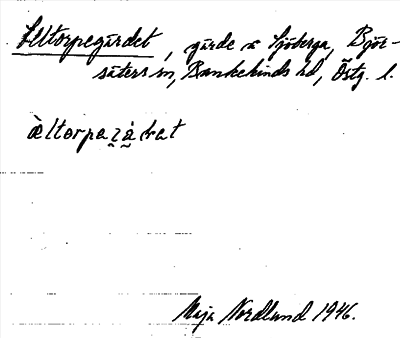 Ältorpegärdet, gärde å Sjöberga, Björ-
säters sn, Bankekinds hd, Östg. l.
Maja Nordlund 1946.